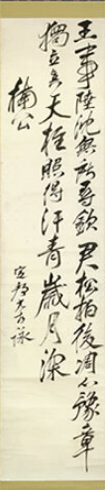 王事陸沈無所尋欽君松柏後凋心豫章
獨立支天柱照得汗青歲月深
楠公